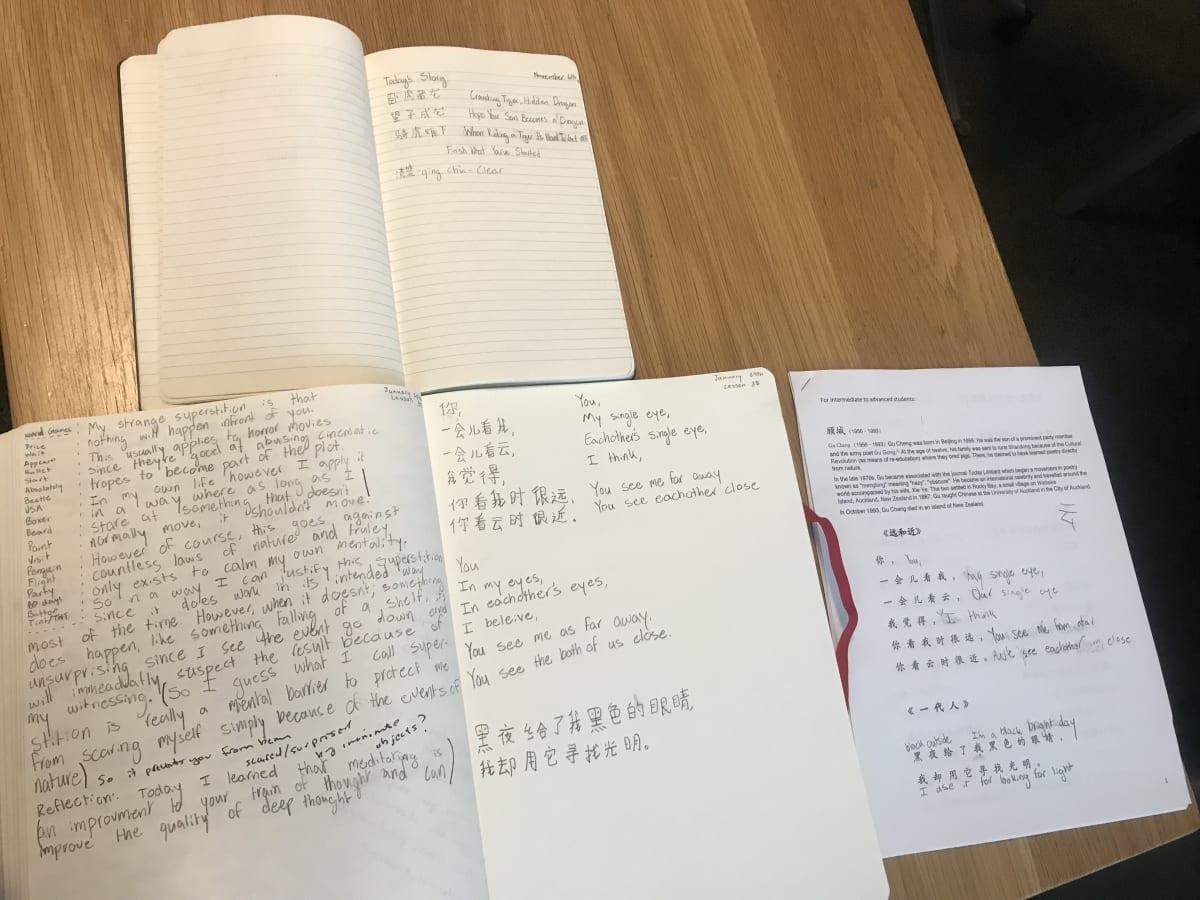 Today's Story
November 6th
卧虎藏龙 Crouching Tiger, Hidden Dragon
望子成龙 Hope Your Son Becomes a Dragon
骑虎难下 When Riding a Tiger Its Hard To Get Off
Finish What You've Started
清楚 qing chu - Clear
January
Lesson
Word Games:
Price
Wait
Appear
Ballet
Start
Absolutely
Beatle
USA
Boxer
Beard
Point
Visit
Penguin
Flight
Party
NO days
Button
Tint/TNT
My strange superstition is that
nothing will happen infront of you.
This usually applies to horror movies
since they're good at abusing cinematic
tropes to become part of the plot.
In my own life however I apply it
in a way where as long as I
stare at something that doesn't
normally move, it shouldn't move.
However of course, this goes against
countless laws of nature and truley
only exists to calm my own mentality.
So in a way I can justify this superstition
since it does work in its intended way
most of the time. However, when it doesn't, something
does happen, like something falling of a shelf, its
unsurprising since I see the event go down and
will immeadiatly suspect the result because of
my witnessing. (So I guess what I call super-
stition is really a mental barrier to protect me
from scaring myself simply because of the events of
nature) So it prevents you from being
scared/surprised by inanimate objects?
Reflection: Today I learned that meditating is
(an improvment to your train of thought and can)
improve the quality of deep thought
January 29th
Lesson 28
你, You,
一会儿看我, My single eye,
一会儿看云, Eachother's single eye,
我觉得, I think,
你看我时很远, You see me far away
你看云时很近。 You see eachother close
You
In my eyes,
In eachother's eyes,
I beleive,
You see me as far away.
You see the both of us close.
黑夜给了我黑色的眼睛,
我却用它寻找光明。
For intermediate to advanced students:
顾城 (1956 - 1993)
Gu Cheng (1956 - 1993) Gu Cheng was born in Beijing in 1956. He was the son of a prominent party member
and the army poet Gu Gong. At the age of twelve, his family was sent to rural Shandong because of the Cultural
Revolution (as means of re-education) where they bred pigs. There, he claimed to have learned poetry directly
from nature.
In the late 1970s, Gu became associated with the journal Today (Jintian) which began a movement in poetry
known as "menglong" meaning "hazy", "obscure". He became an international celebrity and travelled around the
world accompanied by his wife, Xie Ye. The two settled in Rocky Bay, a small village on Waiheke
Island, Auckland, New Zealand in 1987. Gu taught Chinese at the University of Auckland in the City of Auckland.
In October 1993, Gu Cheng died in an island of New Zealand.
云
《远和近》
你, You,
一会儿看我, My single eye,
一会儿看云, Our single eye
我觉得, I think
你看我时很远, You see me from afar
你看云时很近。 We see eachother close
《一代人》
back outside I'm a black bright day
黑夜给了我黑色的眼睛,
我却用它寻找光明。
I use it for looking for light
1